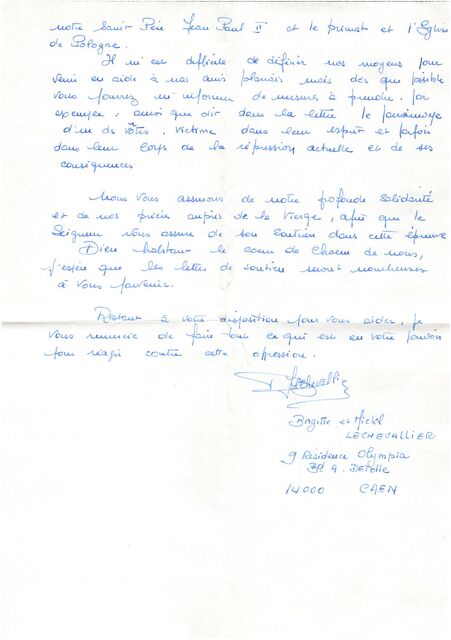 notre Saint Père Jean Paul II et le primat et l'Eglise
de Pologne.
Il m'est difficile de définir nos moyens pour
venir en aide à nos amis polonais mais dès que possible
vous pourrez m'informer de mesures à prendre. Par
exemple : ainsi que dit dans la lettre le parrainage
d'un des vôtres, victime dans leur esprit et parfois
dans leur corps de la répression actuelle et de ses
conséquences
Nous vous assurons de notre profonde solidarité
et de nos prières auprès de la Vierge, afin que le
Seigneur vous assure de son soutien dans cette épreuve
Dieu habitant le coeur de chacun de nous,
j'espère que les lettres de soutien seront nombreuses
à vous parvenir.
Restant à votre disposition pour vous aider, je
vous remercie de faire tout ce qui est en votre pouvoir
pour réagir contre cette oppression.
Lechevallier
Brigitte et Michel
LECHEVALLIER
9 Residence Olympia
Bd A. Detolle
14000 CAEN